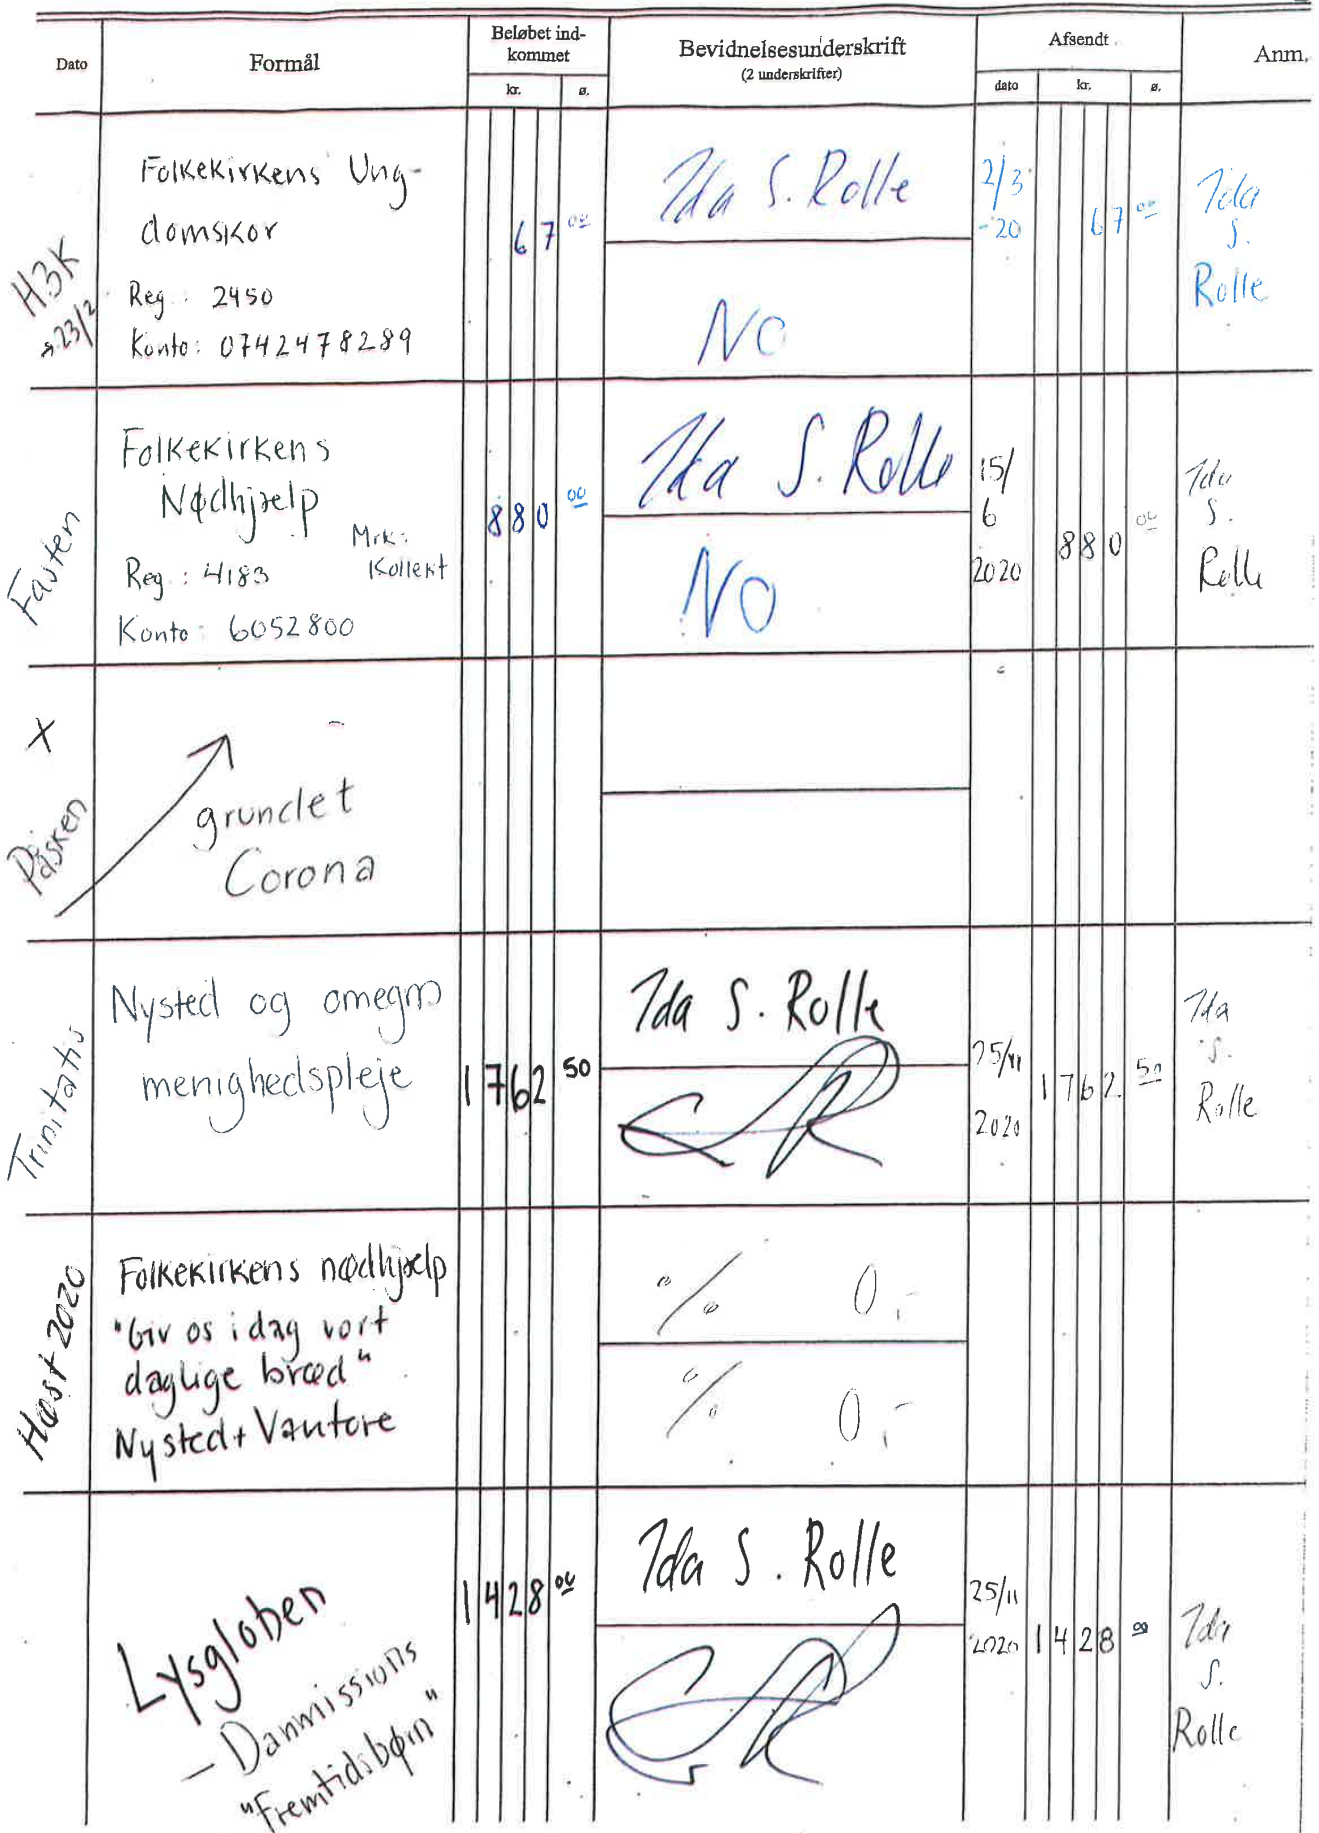 Dato
Formål
Beløbet ind-
kommet
kr.
ø.
Bevidnelsesunderskrift
(2 underskrifter)
Afsendt
dato
kr.
ø.
Anm.
H3K
23/2
Folkekirkens Ung-
domskor
Reg.: 2450
Konto: 07424478289
67 00
Ida S. Rolle
NO
2/3
-20
67 00
Ida
S.
Rolle
Fasten
Folkekirkens
Nødhjælp
Mrk:
Kollekt
Reg.: 4183
Konto: 6052800
880 00
Ida S. Rolle
NO
15/
6
2020
880 00
Ida
S.
Rolle
X
Påsken
grundet
Corona
Trinitatis
Nysted og omegns
menighedspleje
1762 50
Ida S. Rolle
25/11
2020
1762 50
Ida
S.
Rolle
Høst 2020
Folkekirkens nødhjælp
"Giv os i dag vort
daglige brød"
Nysted + Vantore
% 0,-
% 0,-
Lysgloben
– Danmissions
"Fremtidsbørn"
1428 00
Ida S. Rolle
25/11
2020
1428 00
Ida
S.
Rolle